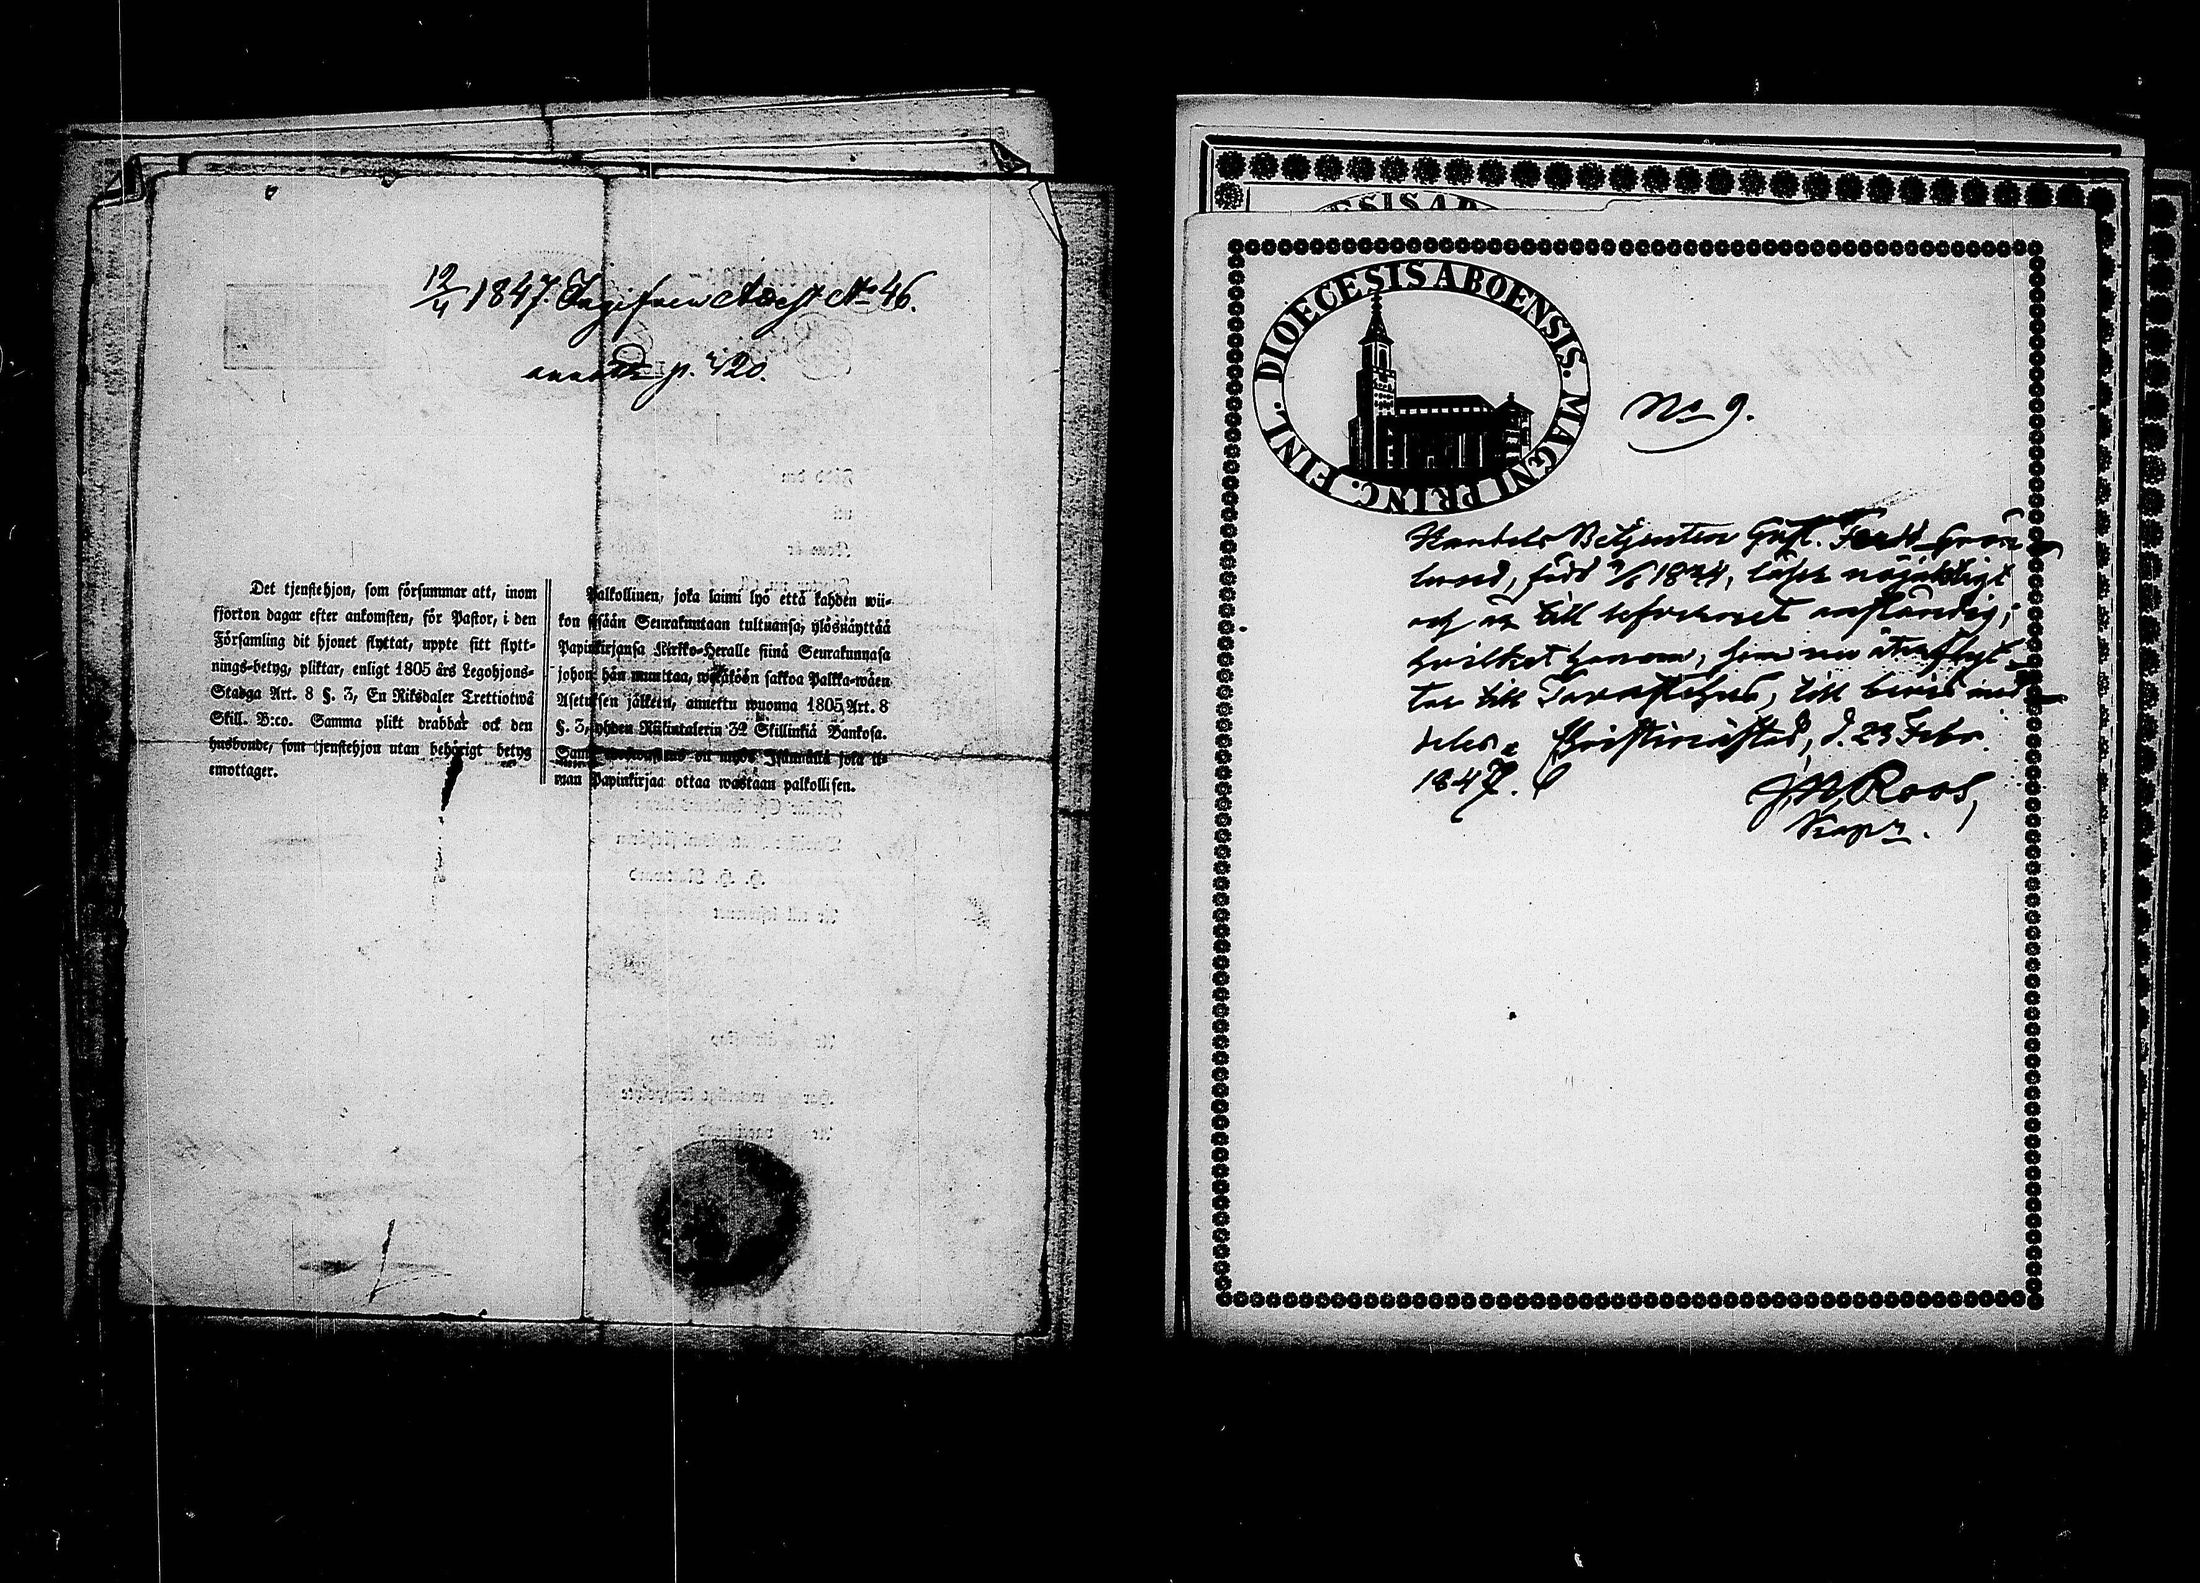 12/4 1847. Ingifven Attest No 46.
p. 420.
Det tjenstehjon, som försummar att, inom
fjorton dagar efter ankomsten, för Pastor, i den
Församling dit hjonet flyttat, uppte sitt flytt-
nings-betyg, pliktar, enligt 1805 års Legohjons-
Stadga Art. 8 §. 3, En Riksdaler Trettiotwå
Skill. B:co. Samma plikt drabbar ock den
husbonde, som tjenstehjon utan behörigt betyg
emottager.
Palkollinen, joka laimi lyö että kahden wii-
kon sisään Seurakuntaan tultuansa, ylösnäyttää
Papinkirjansa Kirkko-Heralle siinä Seurakunnasa
johon hän muuttaa, wetäköön sakkoa Palkka-wäen
Asetuksen jälkeen, annettu wuonna 1805 Art. 8
§. 3, yhden Riikintalerin 32 Skillinkiä Bankosa.
Sama on myös Isännällä joka il-
man Papinkirjaa ottaa wastaan palkollisen.
DIOECESIS ABOENSIS. MAGNI PRINC. FINL.
No 9.
Handels Betjenten Gust. Ferd. Grön
lund, född 1824, läser nöjaktigt
och är till lefvernet anständig;
hvilket honom, som nu återflyt
tar till Tavastehus, till bevis med
delas. Christinæstad, d. 23 Febr.
1847.
J. M. Roos,